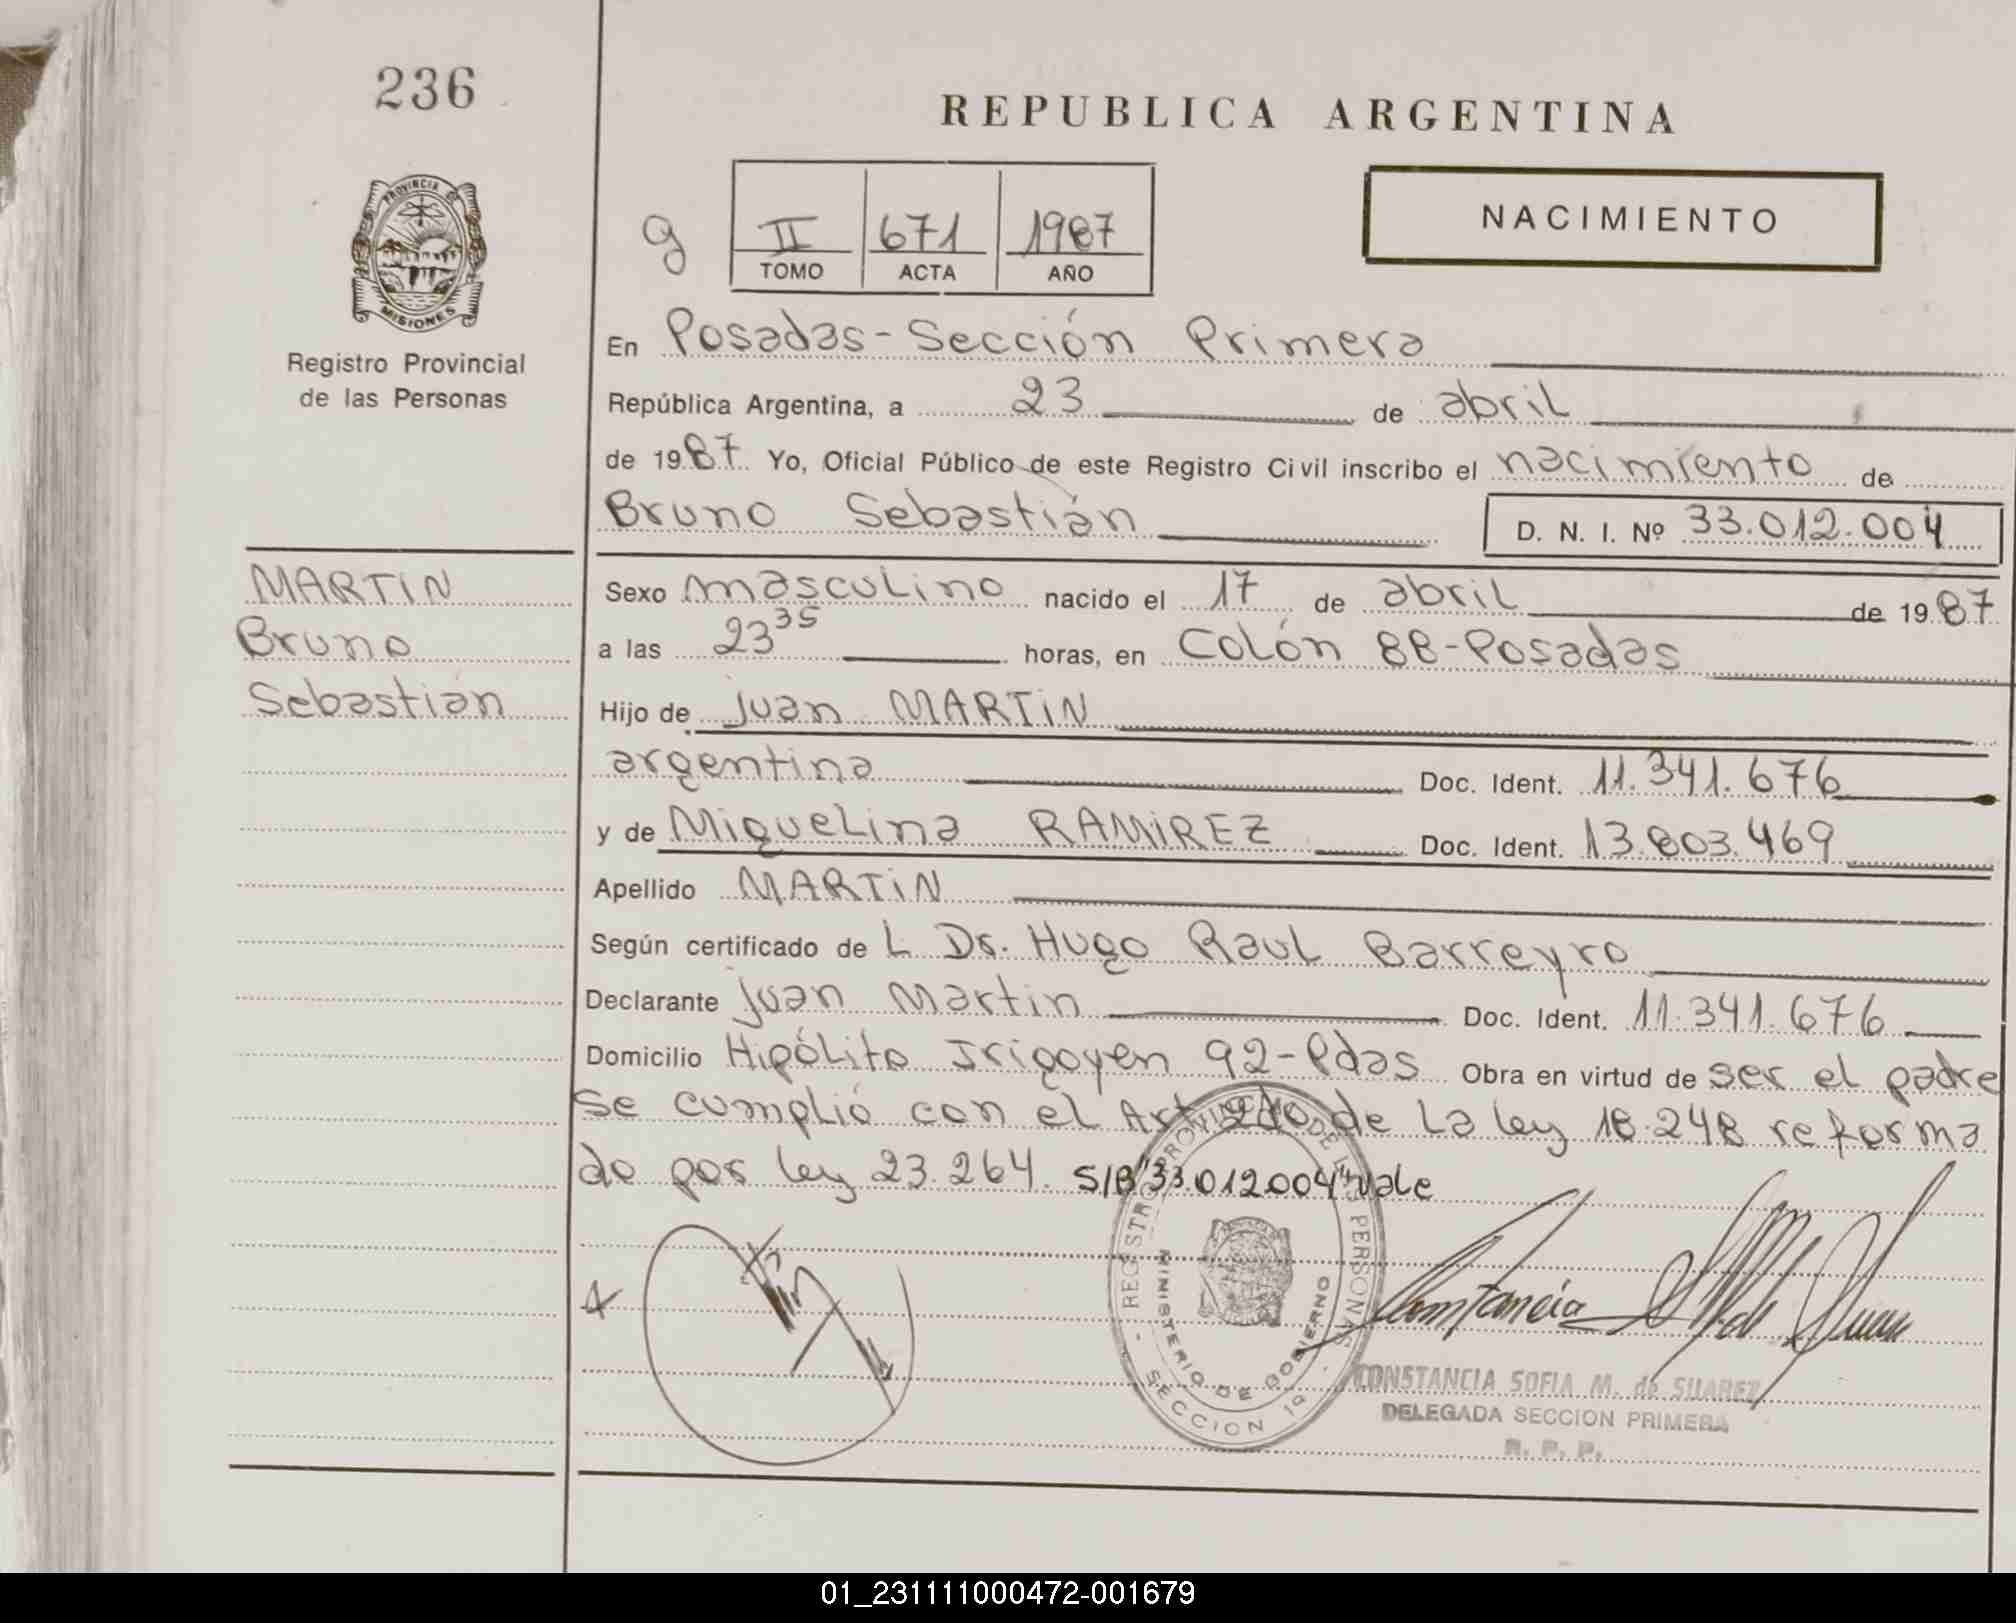 236
REPUBLICA ARGENTINA
PROVINCIA DE
MISIONES
Registro Provincial
de las Personas
g
II
671
1987
TOMO
ACTA
AÑO
NACIMIENTO
En Posadas-Sección Primera
República Argentina, a 23 de abril
de 1987 Yo, Oficial Público de este Registro Civil inscribo el nacimiento de
Bruno Sebastián
D. N. I. Nº 33.012.004
MARTIN
Bruno
Sebastián
Sexo masculino nacido el 17 de abril de 1987
a las 23 35 horas, en Colón 88-Posadas
Hijo de Juan MARTIN
argentina Doc. Ident. 11.341.676
y de Miguelina RAMIREZ Doc. Ident. 13.803.469
Apellido MARTIN
Según certificado de L Dr. Hugo Raul Barreyro
Declarante Juan Martin Doc. Ident. 11.341.676
Domicilio Hipólito Irigoyen 92-Pdas Obra en virtud de ser el padre
se cumplió con el Art 2do de La Ley 18.248 reforma
do por Ley 23.264. S/B"33.012004"Vale
REGISTRO PROVINCIAL DE LAS PERSONAS
MINISTERIO DE GOBIERNO
SECCION 1ª
CONSTANCIA SOFIA M. de SUAREZ
DELEGADA SECCION PRIMERA
R. P. P.
01_231111000472-001679